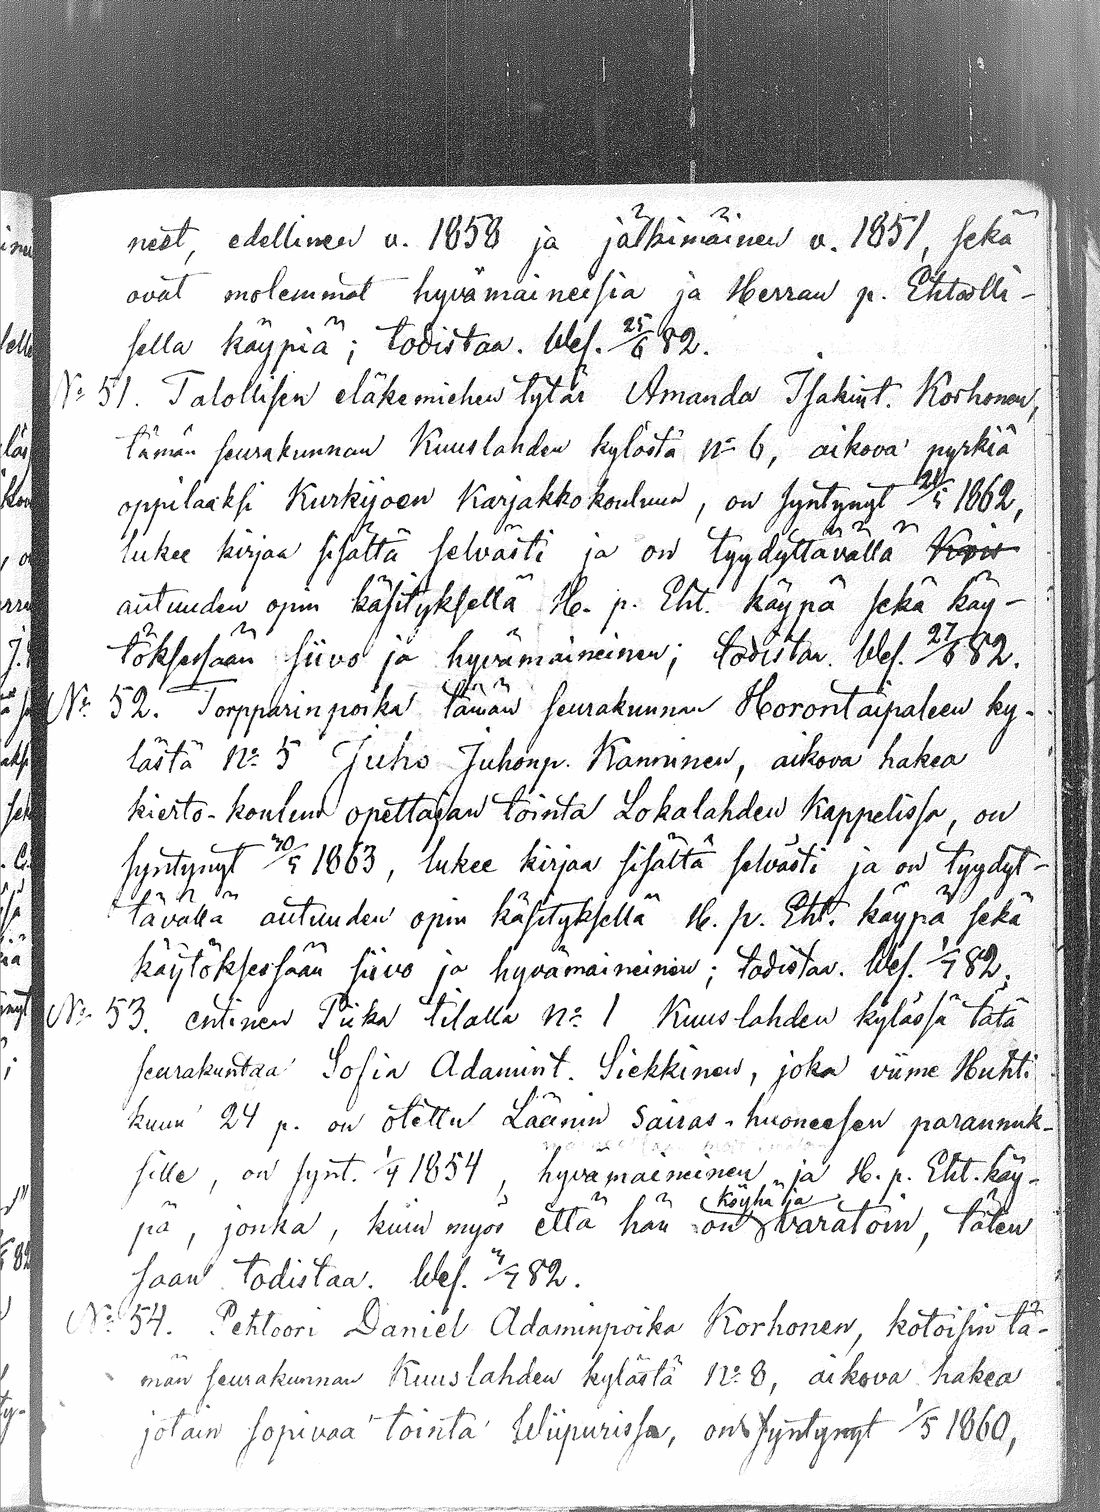 nest, edellinen v. 1858 ja jälkimäinen v. 1851, sekä
ovat molemmat hyvämaineisia ja Herran p. Ehtoolli-
sella käypiä; todistaa. Wes. 25/6 82.
No 51. Talollisen eläkemiehen tytär Amanda Isakint. Korhonen,
tämän seurakunnan Kuuslahden kylästä no 6, aikova pyrkiä
oppilaaksi Kurkijoen Karjakkokouluun, on syntynyt /5 1862,
lukee kirjaa sisältä selvästi ja on tyydyttävällä
autuuden opin käsityksellä H. p. Eht. käypä sekä käy-
töksessään siivo ja hyvämaineinen; todistaa. Wes. 27/6 82.
No 52. Torpparinpoika tämän seurakunnan Horontaipaleen ky-
lästä no 5 Juho Juhonp. Kanninen, aikova hakea
kierto-koulun opettajan tointa Lokalahden Kappelissa, on
syntynyt /5 1863, lukee kirjaa sisältä selvästi ja on tyydyt-
tävällä autuuden opin käsityksellä H. p. Eht. käypä sekä
käytöksessään siivo ja hyvämaineinen; todistaa. Wes. 1/7 82.
No 53. entinen Piika tilalla no 1 Kuuslahden kylässä tätä
seurakuntaa Sofia Adamint. Siekkinen, joka viime Huhti
kuun 24 p. on otettu Läänin sairas-huoneesen parannuk-
sille, on synt. 1/4 1854, hyvämaineinen ja H. p. Eht. käy-
pä, jonka, kuin myös että hän on köyhä ja varatoin, täten
saan todistaa. Wes. /7 82.
No 54. Pehtoori Daniel Adaminpoika Korhonen, kotoisin tä-
män seurakunnan Kuuslahden kylästä no 8, aikova hakea
jotain sopivaa tointa Wiipurissa, on syntynyt 1/5 1860,